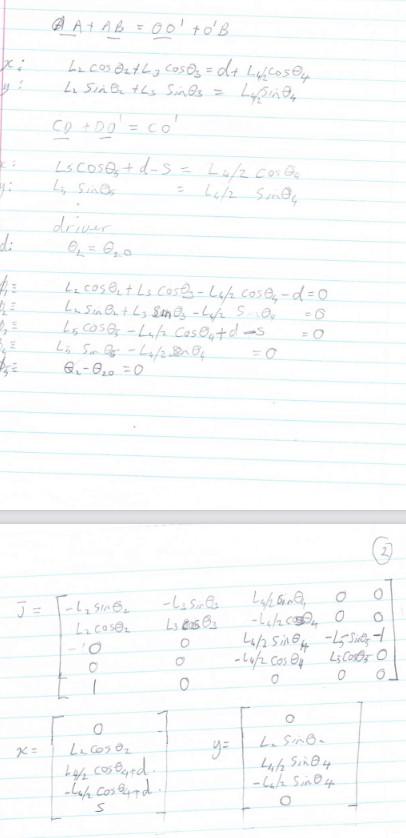 OA + AB = OO' + O'B
x: L2 cosθ2 + L3 cosθ3 = d + L4/2 cosθ4
y: L2 sinθ2 + L3 sinθ3 = L4/2 sinθ4
CD + DO' = CO'
: L5 cosθ5 + d - S = L4/2 cosθ4
y: L5 sinθ5 = L4/2 sinθ4
driver
d: θ2 = θ20
≡ L2 cosθ2 + L3 cosθ3 - L4/2 cosθ4 - d = 0
≡ L2 sinθ2 + L3 sinθ3 - L4/2 S θ4 = 0
≡ L5 cosθ5 - L4/2 cosθ4 + d - s = 0
≡ L5 sinθ5 - L4/2 sinθ4 = 0
≡ θ2 - θ20 = 0
2
J = [ -L2 sinθ2 -L3 sinθ3 L4/2 sinθ4 0 0
L2 cosθ2 L3 cosθ3 -L4/2 cosθ4 0 0
0 0 L4/2 sinθ4 -L5 sinθ5 -1
0 0 -L4/2 cosθ4 L5 cosθ5 0
1 0 0 0 0 ]
x = [ 0
L2 cosθ2
L4/2 cosθ4 + d
-L4/2 cosθ4 + d
S ]
y = [ 0
L2 sinθ2
L4/2 sinθ4
-L4/2 sinθ4
0 ]